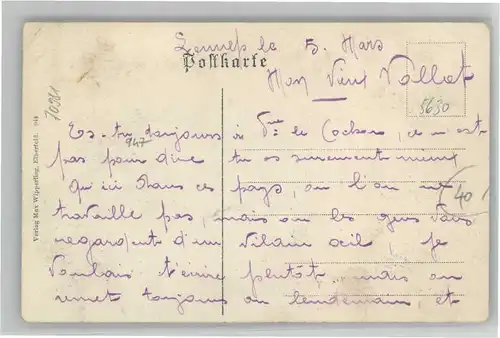 Lennep le 5 Mars
Postkarte
Mon Vieux Vallat
5630
70961
Es-tu toujours à le Cochon, ce n'est
947
pas pour dire tu es surement mieux
qu'ici dans ces pays, ou l'on ne
40
travaille pas, mais ou les gens vous
regardent d'un vilain œil, je
voulais t'écrire plutôt.. mais on
remet toujours au lendemain, et
Verlag Max Wipperling, Elberfeld.